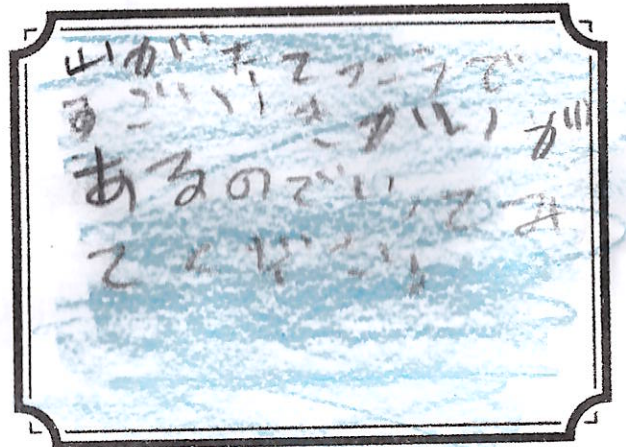 山がたてっこうで
すごいきかいが
あるのでいってみ
てください